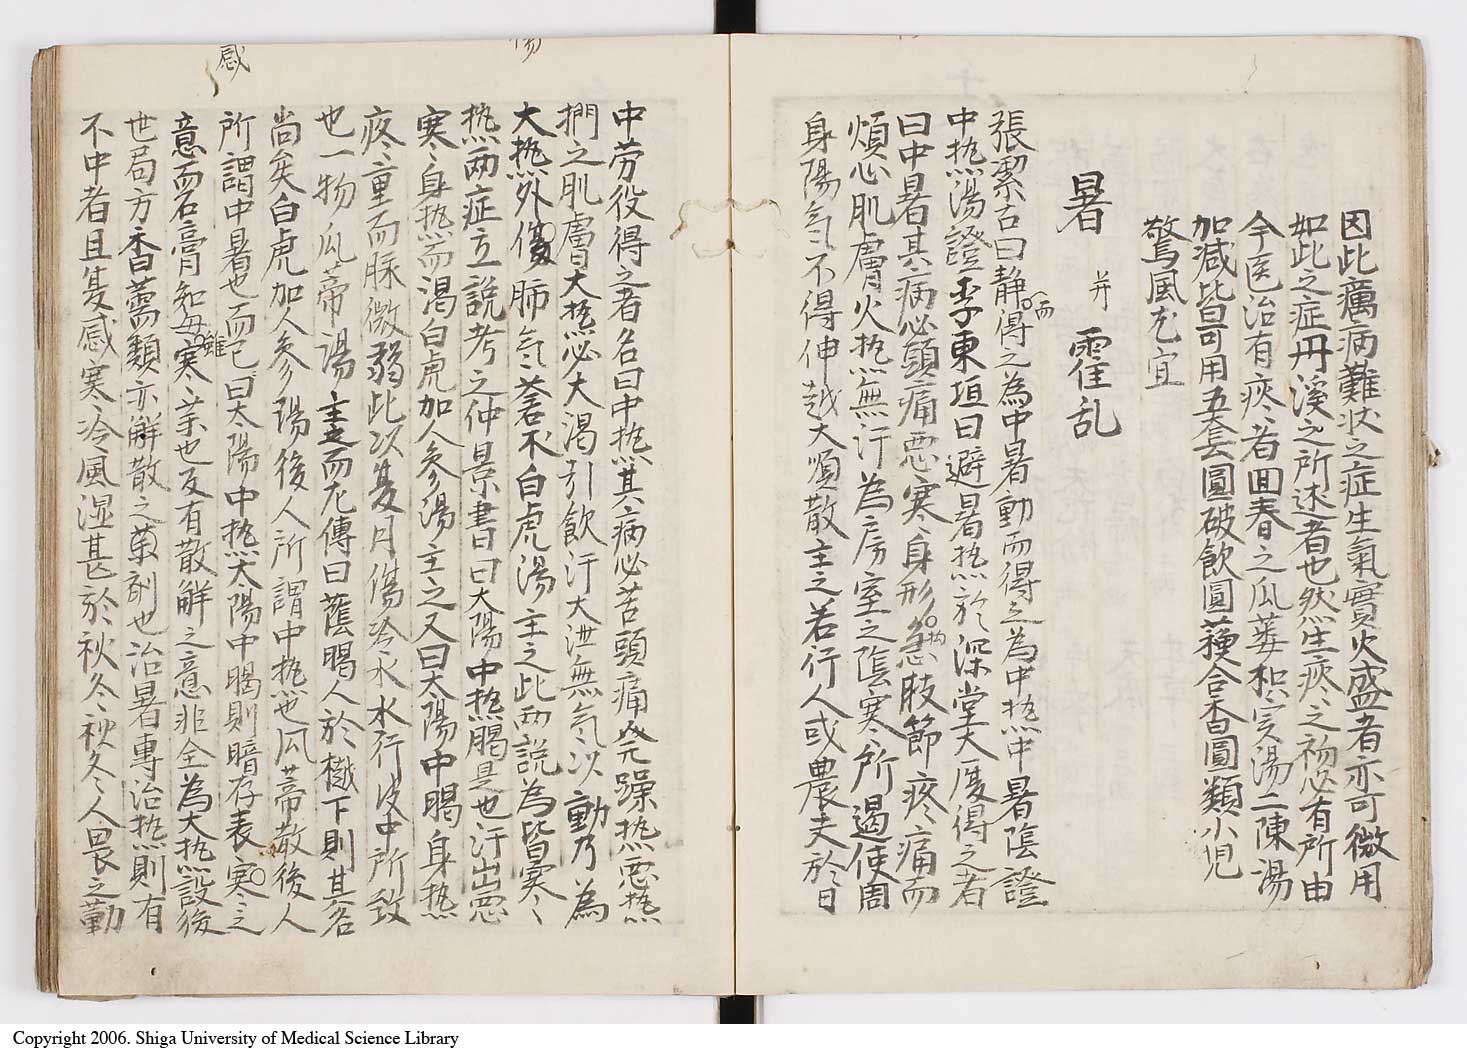 因此癘病難状之症生氣實火盛者亦可微用
如此之症丹溪之所述者也然生痰之初必有所由
今医治有痰者回春之瓜蔞枳实湯二陳湯
加減皆可用五套圓破飲圓蘓合香圓類小児
驚風尤宜
暑 并 霍乱
張潔古曰静而得之為中暑動而得之為中热中暑陰證
中热湯證李東垣曰避暑热於深堂大厦得之者
曰中暑其病必頭痛悪寒身形拘急肢節疼痛而
煩心肌膚火热無汗為房室之陰寒所遏使周
身陽気不得伸越大順散主之若行人或農夫於日
中労役得之者名曰中热其病必苦頭痛発躁热悪热
捫之肌膚大热必大渇引飲汗大泄無気以動乃為
大热外傷肺気蒼朮白虎湯主之此両説為皆寒
热両症立說考之仲景書曰太陽中热暍是也汗出悪
寒身热而渇白虎加人参湯主之又曰太陽中暍身热
疼重而脉微弱此以夏月傷冷水水行皮中所致
也一物瓜蒂湯主之而左傳曰蔭暍人於樾下則其名
尚矣白虎加人参湯後人所謂中热也瓜蒂散後人
所謂中暑也而已曰太陽中热太陽中暍則暗存表寒之
意而石膏知母雖寒薬也反有散解之意非全為大热設後
世局方香薷類亦解散之薬剤也治暑專治热則有
不中者且夏感寒冷風湿甚於秋冬秋冬人畏之勤
感
傷
Copyright 2006. Shiga University of Medical Science Library